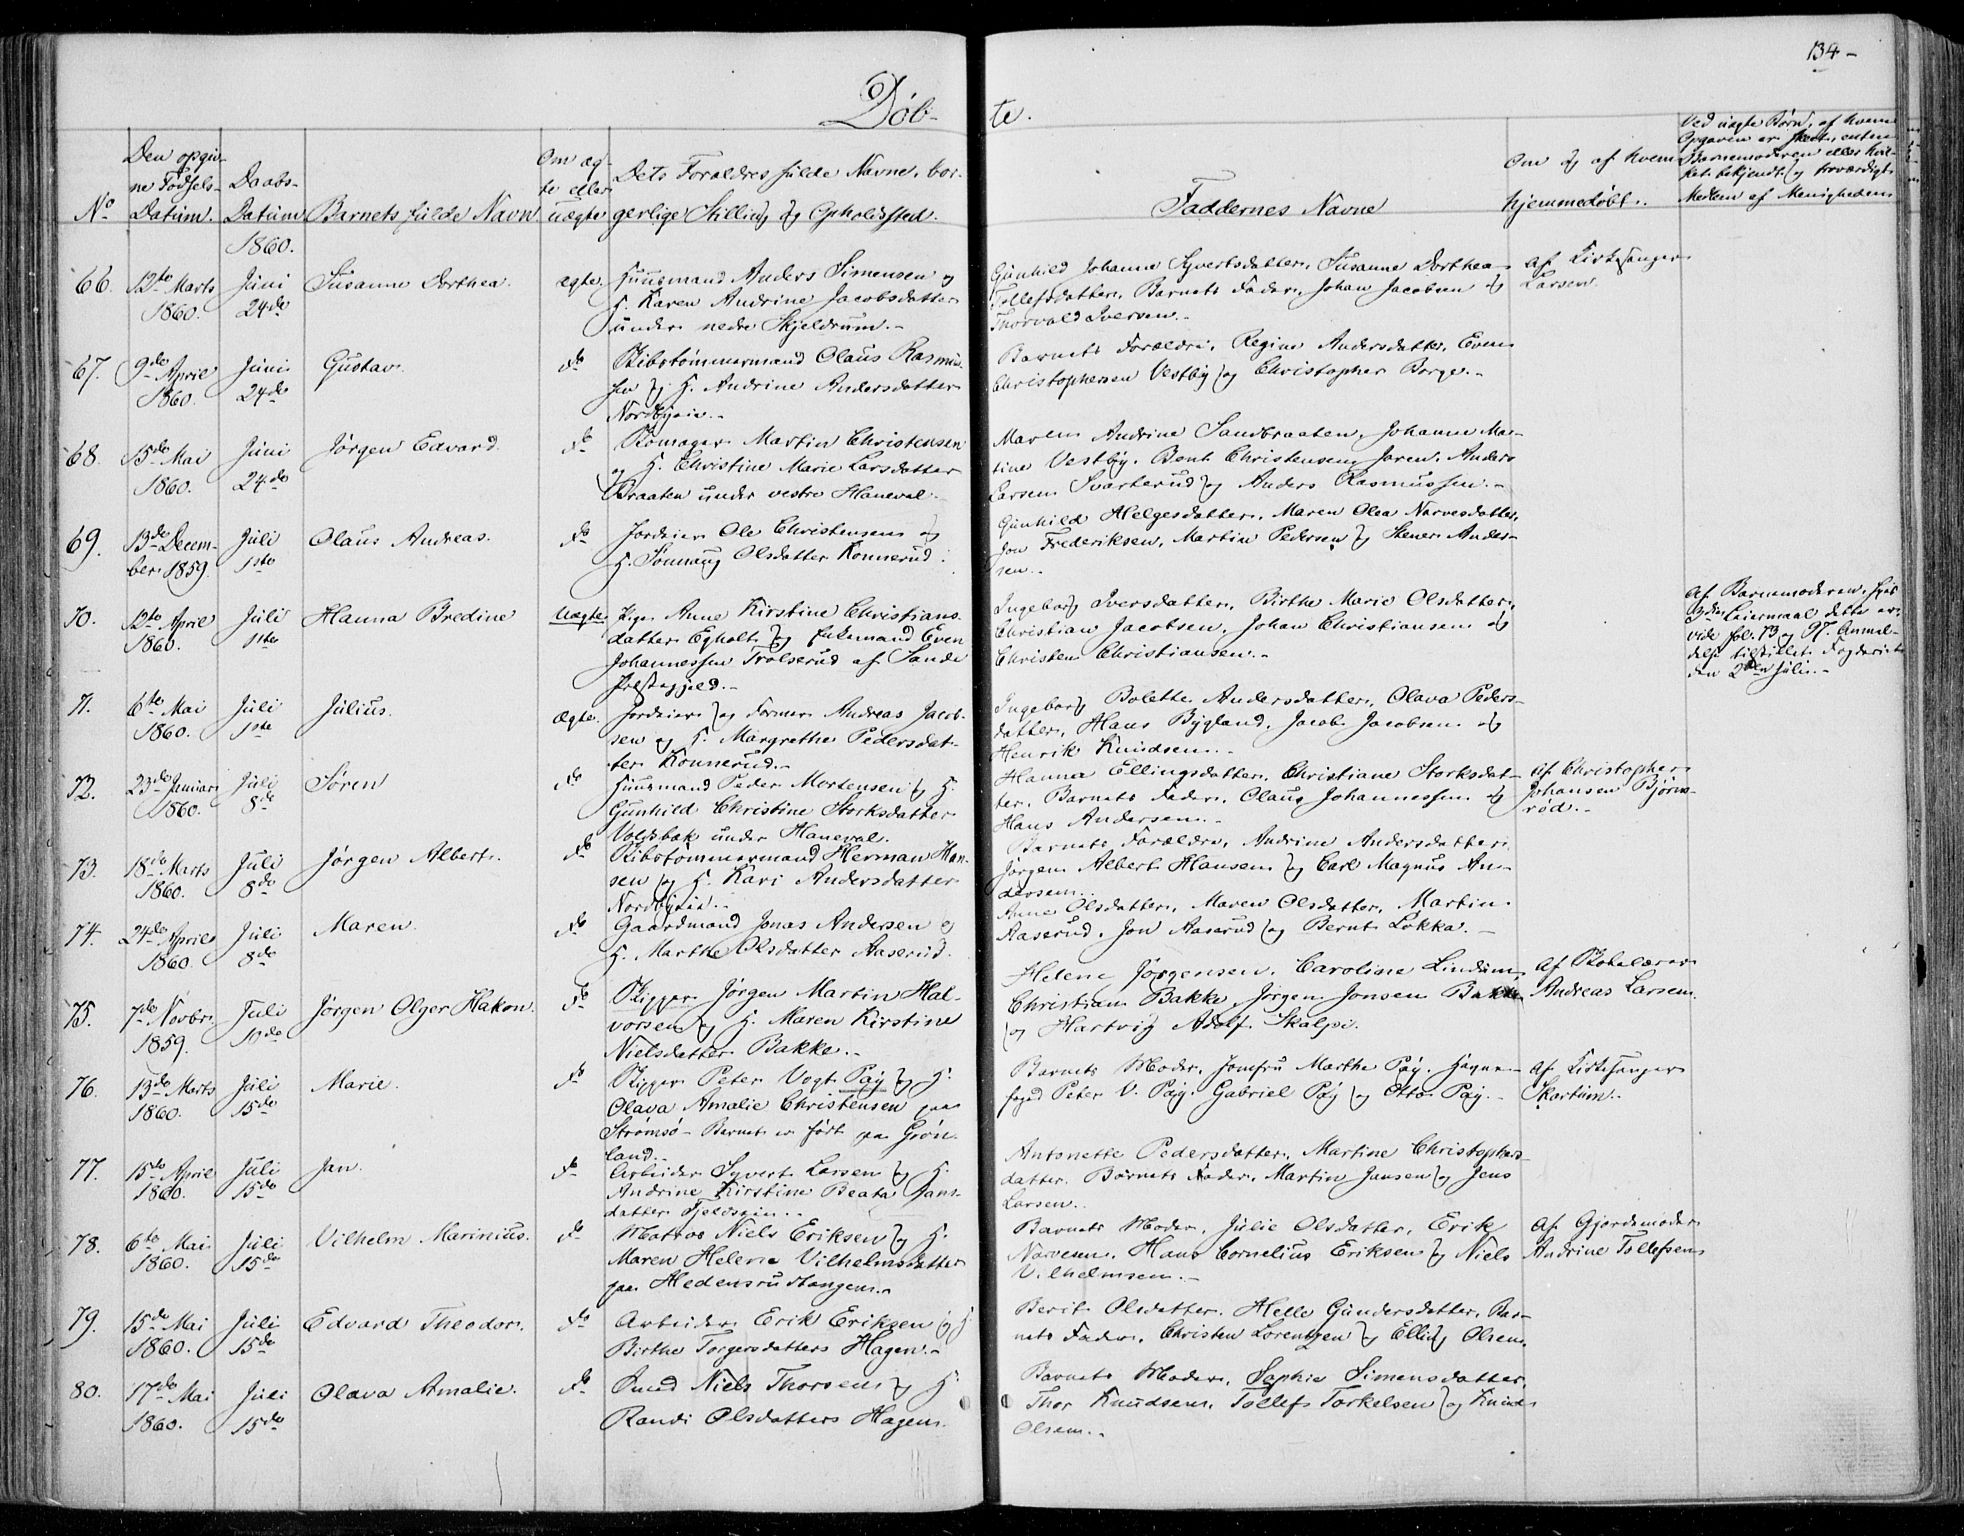 134 -
Döb-
te.
No
Den opgiv-
ne Födsels-
Datum.
Daabs-
Datum
Barnets fulde Navn
Om æg-
te eller
uægte
Dets Forældres fulde Navne, bor-
gerlige Stilling og Opholdsted.
Faddernes Navne
Om og af hvem
hjemmedöbt.
Ved uægte Börn, af hvem
Opgaven er skeet, enten
Barnemoderen eller
bekjendt og troværdigt
Medlem af Menigheden
1860.
66. 12te Marts 1860. Juni 24de Susanne Dorthea. ægte.
Huusmand Anders Simensen og
H. Karen Andrine Jacobsdatter
under nedre Skjeldrum.-
Gunhild Johanne Syvertsdatter, Susanne Dorthea
Tollefsdatter, Barnets Fader, Johan Jacobsen og
Thorvald Iversen.-
Af Kirkesanger
Larsen.
67. 9de April 1860. Juni 24de Gustav. do
Skibstömmermand Olaus Rasmus-
sen og H. Andrine Andersdatter
Barnets Forældre, Regine Andersdatter, Even
Christophersen Vestby og Christopher Borge.-
68. 15de Mai 1860. Juni 24de Jörgen Edvard. do
Skomager Martin Christensen
og H. Christine Marie Larsdatter
Braaten under vestre Haneval.-
Maren Andrine Sandbraaten, Johanne Mar-
tine Vestby, Bent Christensen Jaren, Anders
Larsen Svarterud og Anders Rasmussen.-
69. 13de Decem-
ber 1859. Juli 1ste Olaus Andreas. do
Jordeier Ole Christensen og
H. Sönnaug Olsdatter Konnerud.
Gunhild Helgesdatter, Maren Olea Narvesdatter,
Jon Frederiksen, Martin Pedersen og Stener Ander-
sen.-
70. 12te April 1860. Juli 1ste Hanna Bredine Uægte
Pige Anne Kirstine Christians-
datter Egholt og Enkemand Even
Johannessen Trolserud af Sande
Præstegjeld.-
Ingeborg Iversdatter, Birthe Marie Olsdatter,
Christian Jacobsen, Johan Christiansen og
Christen Christiansen.-
Af Barnemoderen,
3die Leiermaal dette er,
vide fol. 73 og 97. Anmel-
delse tilstillet Fogderiet
den 2den Juli.-
71. 6te Mai 1860. Juli 1ste Julius. Ægte.
Jordeier og Former Andreas Jacob-
sen og H. Margrethe Pedersdat-
ter Konnerud.-
Ingeborg Bolette Andersdatter, Olava Peders-
datter, Hans Bygland, Jacob Jacobsen og
Henrik Knudsen.-
72. 23de Januar 1860. Juli 8de Sören do
Huusmand Peder Mortensen og H.
Gunhild Christine Storksdatter
Voldsbæk under Haneval.
Hanna Ellingsdatter, Christiane Storksdat-
ter, Barnets Fader, Olaus Johannessen og
Hans Andersen.-
Af Christopher
Johansen Björn-
röd.-
73. 18de Marts 1860. Juli 8de Jörgen Albert. do
Skibstömmermand Herman Han-
sen og H. Kari Andersdatter
Barnets Forældre, Andrine Andersdatter,
Jörgen Albert Hansen og Carl Magnus An-
dersen.
74. 24de April 1860. Juli 8de Maren. do
Gaardmand Jonas Andersen og
H. Marthe Olsdatter Aaserud.
Anne Olsdatter, Maren Olsdatter, Martin
Aaserud, Jon Aaserud og Bernt Lökka.-
75. 7de Novbr. 1859. Juli 10de Jörgen Olger Hakon. do
Skipper Jörgen Martin Hal-
vorsen og H. Maren Kirstine
Nielsdatter Bakke.-
Helene Jörgensen, Caroline Lindum,
Christian Bakke, Jörgen Jonsen Bakke
og Hartvig Adolf Skalpe.
Af Skolelærer
Andreas Larsen.
76. 13de Marts 1860. Juli 15de Marie. do
Skipper Peter Vogt Pay og H.
Olava Amalie Christensen paa
Strömsö - Barnet er födt paa Grön-
land.-
Barnets Moder, Jomfru Marthe Pay, Havne-
foged Peter V. Pay, Gabriel Pay og Otto Pay.-
Af Kirkesanger
Skartum.
77. 15de April 1860. Juli 15de Jan. do
Arbeider Syvert Larsen og H.
Andrine Kirstine Beata Jans-
datter
Antonette Pedersdatter, Martine Christophers-
datter, Barnets Fader, Martin Jansen og Jens
Larsen.
78. 6te Mai 1860. Juli 15de Vilhelm Marinius. do
Matros Niels Eriksen og H.
Maren Helene Vilhelmsdatter
paa Hedensrudtangen.-
Barnets Moder, Julie Olsdatter, Erik
Narvesen, Hans Cornelius Eriksen og Niels
Vilhelmsen.-
Af Gjordemoder
Andrine Tollefsen
79. 15de Mai 1860. Juli 15de Edvard Theodor. do
Arbeider Erik Eriksen og H.
Birthe Torgersdatters Hagen.-
Berit Olsdatter, Helle Gundersdatter, Bar-
nets Fader, Christen Lorentzen og Elling Olsen.
80. 17de Mai 1860. Juli 15de Olava Amalie. do
Smed Niels Thorsen og H.
Randi Olsdatters Hagen.
Barnets Moder, Sophie Simensdatter,
Thor Knudsen, Tollef Torkelsen og Knud
Olsen.-